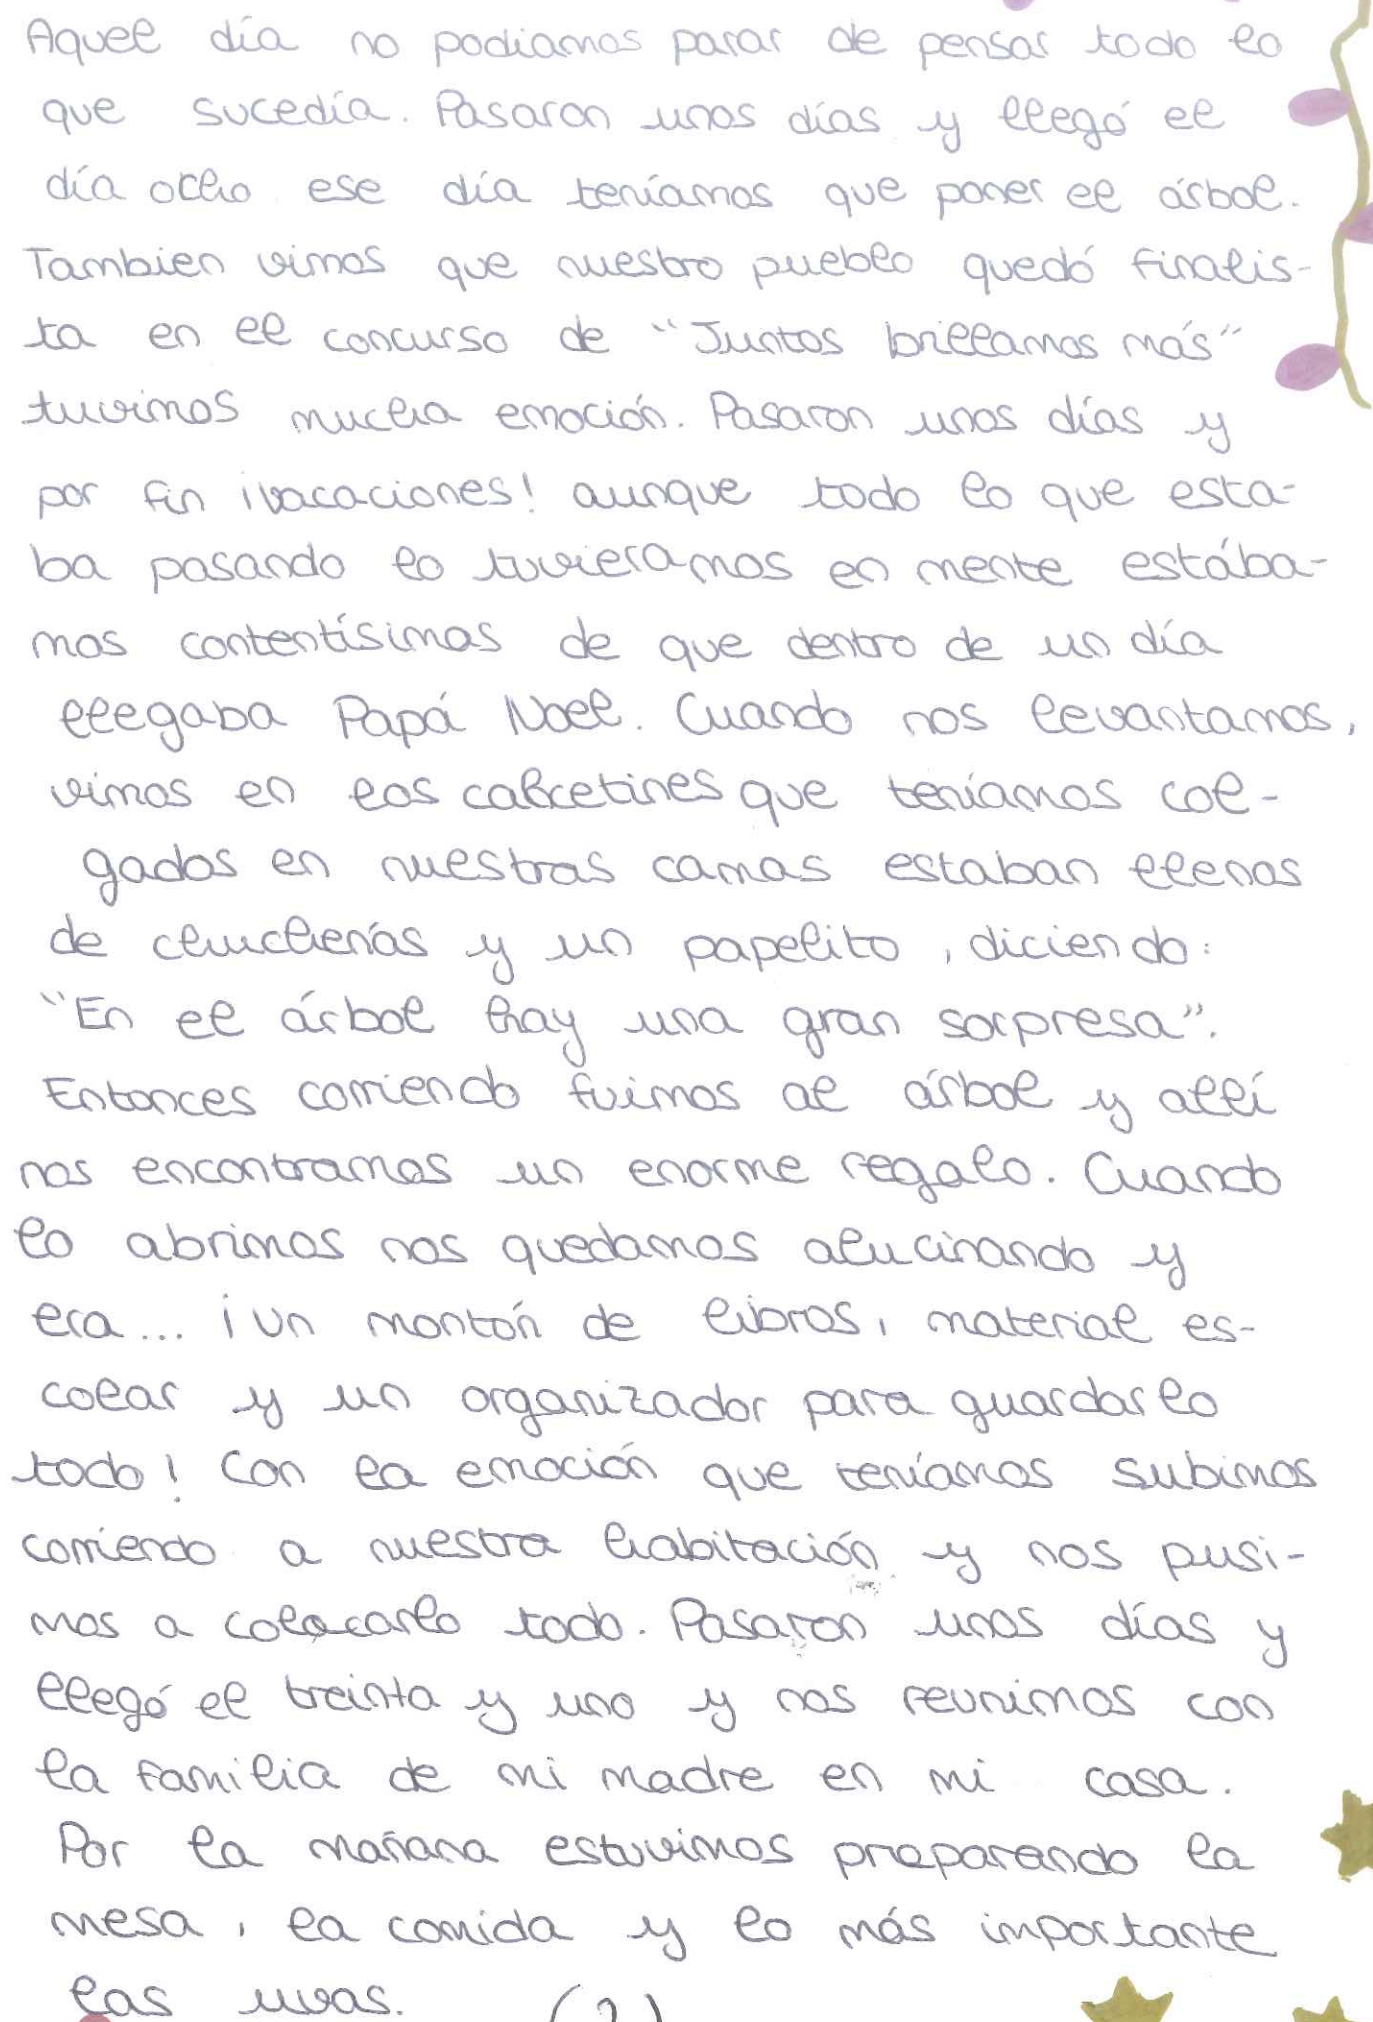 Aquel día no podiamos parar de pensar todo lo
que sucedía. Pasaron unos días y llegó el
día ocho ese día teníamos que poner el árbol.
Tambien vimos que nuestro pueblo quedó finalis-
ta en el concurso de "Juntos brillamos más"
tuvimos mucha emoción. Pasaron unos días y
por fin ¡vacaciones! aunque todo lo que esta-
ba pasando lo tuvieramos en mente estába-
mos contentísimos de que dentro de un día
llegaba Papá Noel. Cuando nos levantamos,
vimos en los calcetines que teníamos col-
gados en nuestras camas estaban llenos
de chucherías y un papelito, diciendo:
"En el árbol hay una gran sorpresa".
Entonces corriendo fuimos al árbol y allí
nos encontramos un enorme regalo. Cuando
lo abrimos nos quedamos alucinando y
era... ¡un montón de libros, material es-
colar y un organizador para guardarlo
todo! Con la emoción que teníamos subimos
corriendo a nuestra habitación y nos pusi-
mos a colocarlo todo. Pasaron unos días y
llegó el treinta y uno y nos reunimos con
la familia de mi madre en mi casa.
Por la mañana estuvimos preparando la
mesa, la comida y lo más importante
las uvas.